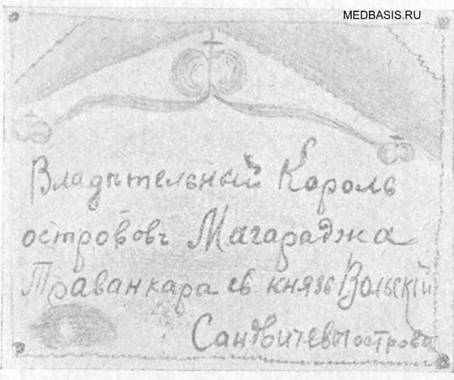 MEDBASIS.RU
Владѣтельный Король
острововъ Магараджа
Траванкара св князь Вольскій
Сандвичевы острова